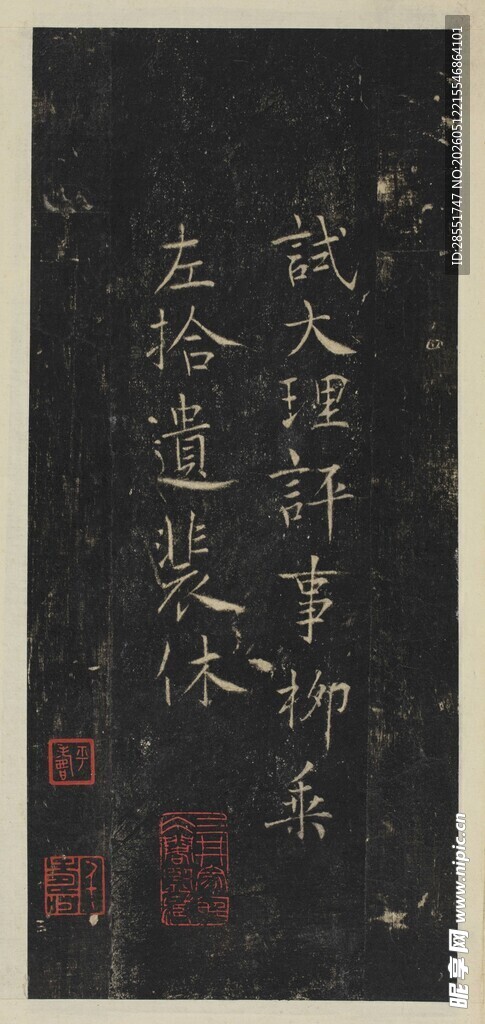 試大理評事柳乘
左拾遺裴休
ID:28551747 NO:20260512215546864101
昵享网 www.nipic.cn